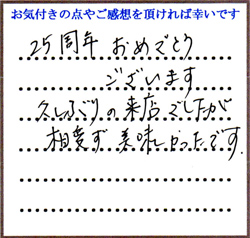 お気付きの点やご感想を頂ければ幸いです
25周年 おめでとう
ございます
久しぶりの来店でしたが
相変ず 美味しかったです.